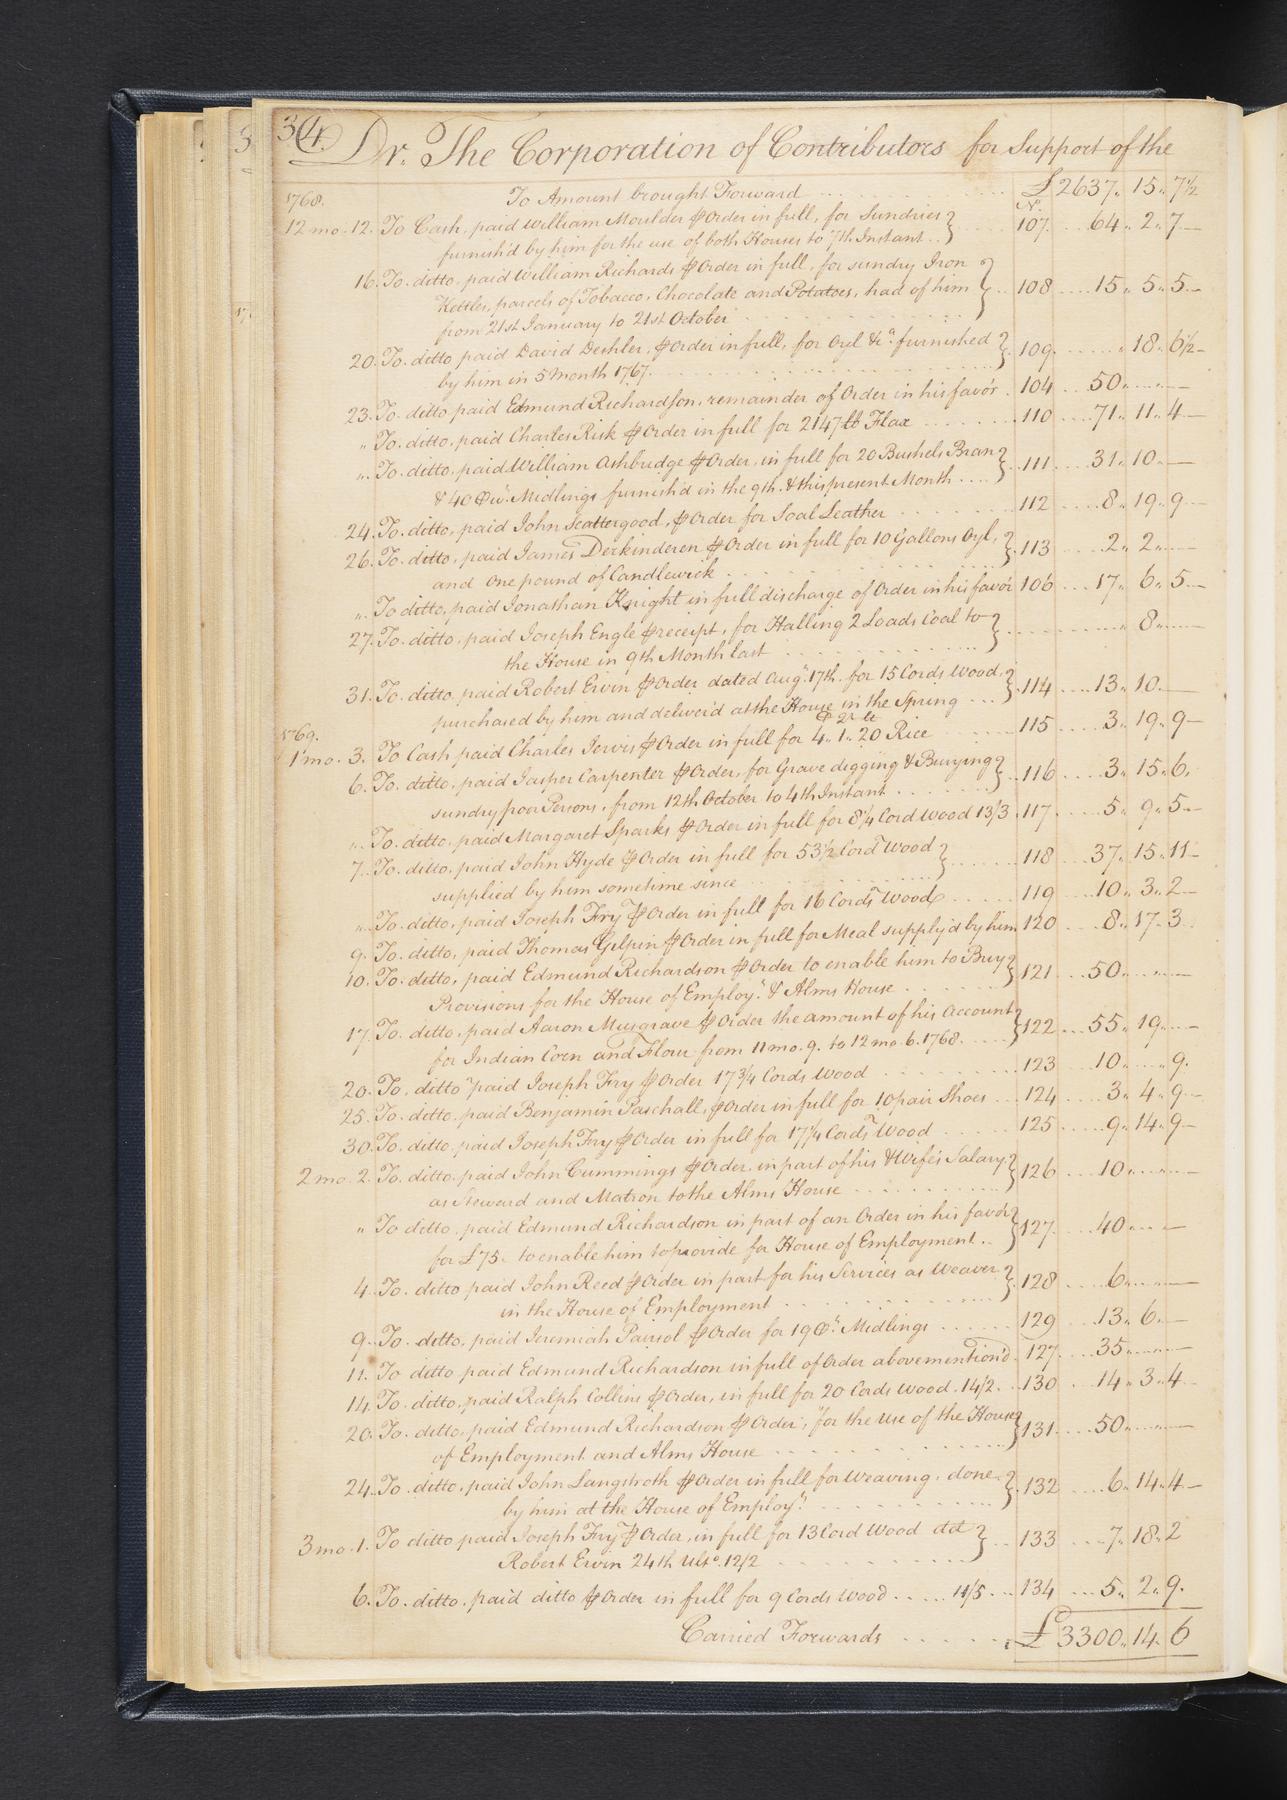 34.
Dr. The Corporation of Contributors for Support of the
1768. To Amount brought Forward £2637. 15. 7½
12 mo. 12. To Cash, paid William Moulder ⅌ Order in full, for Sundries No. 107. 64. 2. 7
furnish'd by him for the use of both Houses to 7th Instant
16. To. ditto. paid William Richards ⅌ Order in full, for sundry Iron
Kettles, parcels of Tobacco, Chocolate and Potatoes, had of him 108 15. 5. 5
from 21st January to 21st October
20. To. ditto paid David Deshler, ⅌ Order in full, for Oyl &ca. furnished 109. 18. 6½
by him in 5 Month 1767.
23. To. ditto paid Edmund Richardson, remainder of Order in his favor 104 50
" To. ditto, paid Charles Risk ⅌ Order in full for 2147 lb Flax 110 71. 11. 4
" To. ditto, paid William Ashbridge ⅌ Order, in full for 20 Bushels Bran 111 31. 10.
& 40 Cwt. Midlings furnish'd in the 9th. & this present Month
24. To. ditto, paid John Scattergood, ⅌ Order for Soal Leather 112 8. 19. 9
26. To. ditto, paid James Derkinderen ⅌ Order in full for 10 Gallons Oyl, 113 2. 2.
and One pound of Candlewick
" To ditto, paid Jonathan Knight in full discharge of Order in his favor 106 17. 6. 5
27. To. ditto, paid Joseph Engle ⅌ receipt, for Halling 2 Loads Coal to 8
the House in 9th Month last
31. To. ditto, paid Robert Erwin ⅌ Order dated Augt. 17th. for 15 Cords Wood, 114 13. 10.
purchased by him and deliver'd at the House in the Spring
1769. C qr lb
1 mo. 3. To Cash paid Charles Jervis ⅌ Order in full for 4. 1. 20 Rice 115 3. 19. 9
6. To. ditto, paid Jasper Carpenter ⅌ Order, for Grave digging & Burying 116 3. 15. 6.
sundry poor Persons, from 12th October to 4th Instant
" To. ditto, paid Margaret Sparks ⅌ Order in full for 8¼ Cord Wood 13/3 117 5. 9. 5
7. To. ditto, paid John Hyde ⅌ Order in full for 53½ Cord Wood 118 37. 15. 11
supplied by him sometime since
" To. ditto, paid Joseph Fry ⅌ Order in full for 16 Cords Wood 119 10. 3. 2
9. To. ditto, paid Thomas Gilpin ⅌ Order in full for Meal supply'd by him 120 8. 17. 3
10. To. ditto, paid Edmund Richardson ⅌ Order to enable him to Buy 121 50
Provisions for the House of Employt. & Alms House
17. To. ditto, paid Aaron Musgrave ⅌ Order the amount of his Account 122 55. 19
for Indian Corn and Flour from 11 mo. 9. to 12 mo. 6. 1768.
20. To. ditto paid Joseph Fry ⅌ Order 17¾ Cords Wood 123 10. 9.
25. To. ditto, paid Benjamin Paschall, ⅌ Order in full for 10 pair Shoes 124 3. 4. 9
30. To. ditto, paid Joseph Fry ⅌ Order in full for 17¼ Cords Wood 125 9. 14. 9
2 mo. 2. To. ditto, paid John Cummings ⅌ Order, in part of his & Wife's Salary 126 10
as Steward and Matron to the Alms House
" To ditto, paid Edmund Richardson in part of an Order in his favor 127. 40
for £75. to enable him to provide for House of Employment
4. To. ditto paid John Reed ⅌ Order in part for his Services as Weaver 128 6
in the House of Employment
9. To. ditto, paid Jeremiah Pairsol ⅌ Order for 19 Cwt. Midlings 129 13. 6.
11. To ditto paid Edmund Richardson in full of Order abovemention'd 127. 35
14. To. ditto, paid Ralph Collins ⅌ Order, in full for 20 Cords Wood. 14/2. 130 14. 3. 4
20. To. ditto, paid Edmund Richardson ⅌ Order, for the Use of the House 131 50
of Employment and Alms House
24. To. ditto, paid John Langstroth ⅌ Order in full for Weaving, done 132 6. 14. 4
by him at the House of Employt.
3 mo. 1. To ditto paid Joseph Fry ⅌ Order, in full for 13 Cord Wood dd 133 7. 18. 2
Robert Erwin 24th Ulto. 12/2
6. To. ditto, paid ditto ⅌ Order in full for 9 Cords Wood 11/5 134 5. 2. 9.
Carried Forwards £3300. 14. 6